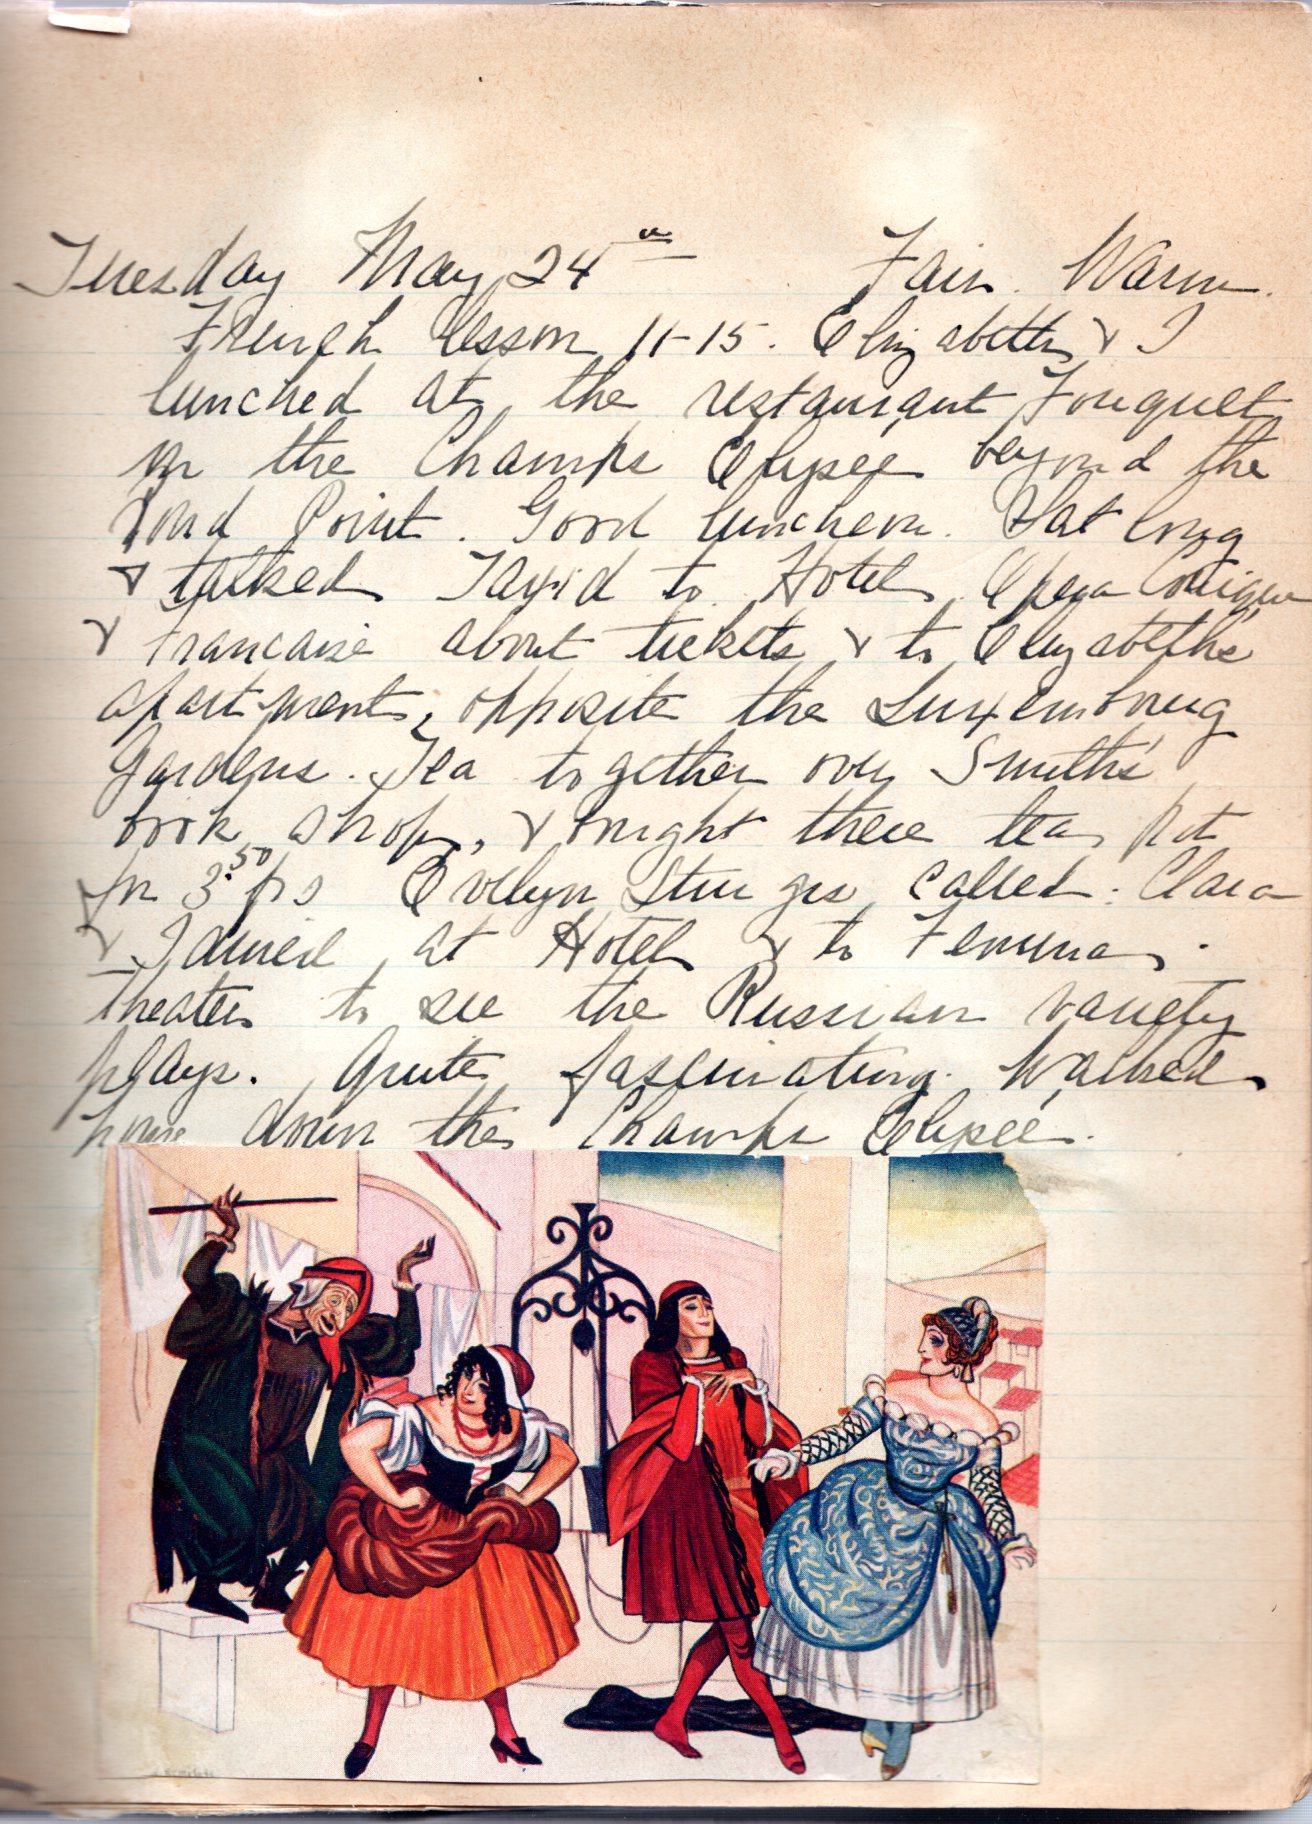 Tuesday May 24th Fair. Warm.
French lesson 11-15. Elizabeth & I
lunched at the restaurant Fouquet
on the Champs Elyseé beyond the
Rond Point. Good luncheon. Sat long
& talked. Taxi'd to Hotel, Opera Comique
& Francaise about tickets & to Elizabeth's
apartment, opposite the Luxembourg
Gardens. Tea together over Smith's
book shop, & bought there tea pot
for 3.50 frs Evelyn Sturgis called. Clara
& I dined at Hotel & to Femina
theater to see the Russian variety
plays. Quite fascinating. Walked
home down the Champs Elyseé.